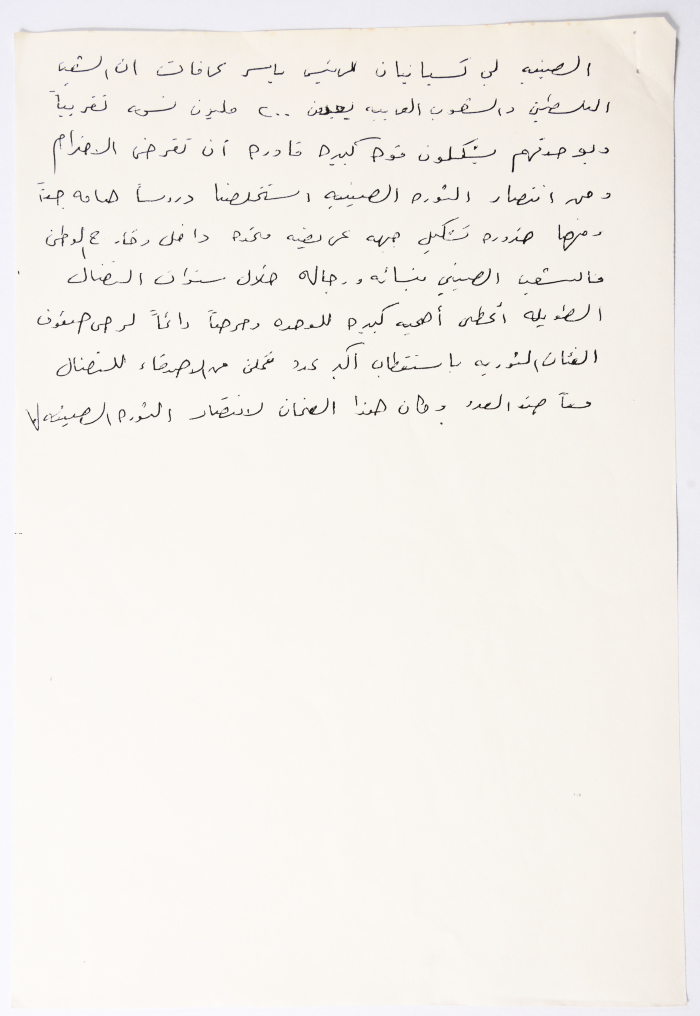 الصينيه لي كسيانيان للرئيس ياسر عرفات ان الشعب
الفلسطيني والشعوب العربيه يعدون ٢٠٠ مليون نسمه تقريباً
وبوحدتهم يشكلون قوه كبيره قادره أن تفرض الاحترام
ومن انتصار الثوره الصينيه استخلصنا دروساً هامه جداً
ومنها ضروره تشكيل جبهه عريضه متحده داخل وخارج الوطن
فالشعب الصيني بنسائه ورجاله خلال سنوات النضال
الطويله أعطى أهميه كبيره للوحده وحرصاً دائماً لرص صفوف
الفئات الثوريه باستقطاب أكبر عدد ممكن من الاصدقاء للنضال
معاً ضد العدو وكان هذا الضمان لانتصار الثوره الصينيه